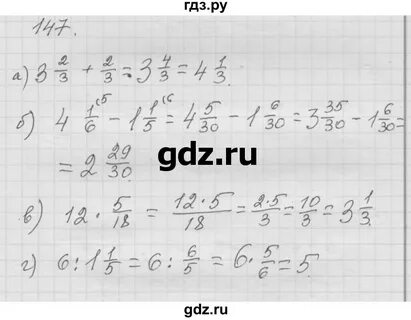 гдз.ру
147.
а) 3 2/3 + 2/3 = 3 4/3 = 4 1/3.
б) 4 1/6 (5 - 1 1/5 (6 = 4 5/30 - 1 6/30 = 3 35/30 - 1 6/30 =
= 2 29/30.
gdz.ru
в) 12 · 5/18 = 12·5/18 = 2·5/3 = 10/3 = 3 1/3.
г) 6 : 1 1/5 = 6 : 6/5 = 6 · 5/6 = 5.
gdz.ru